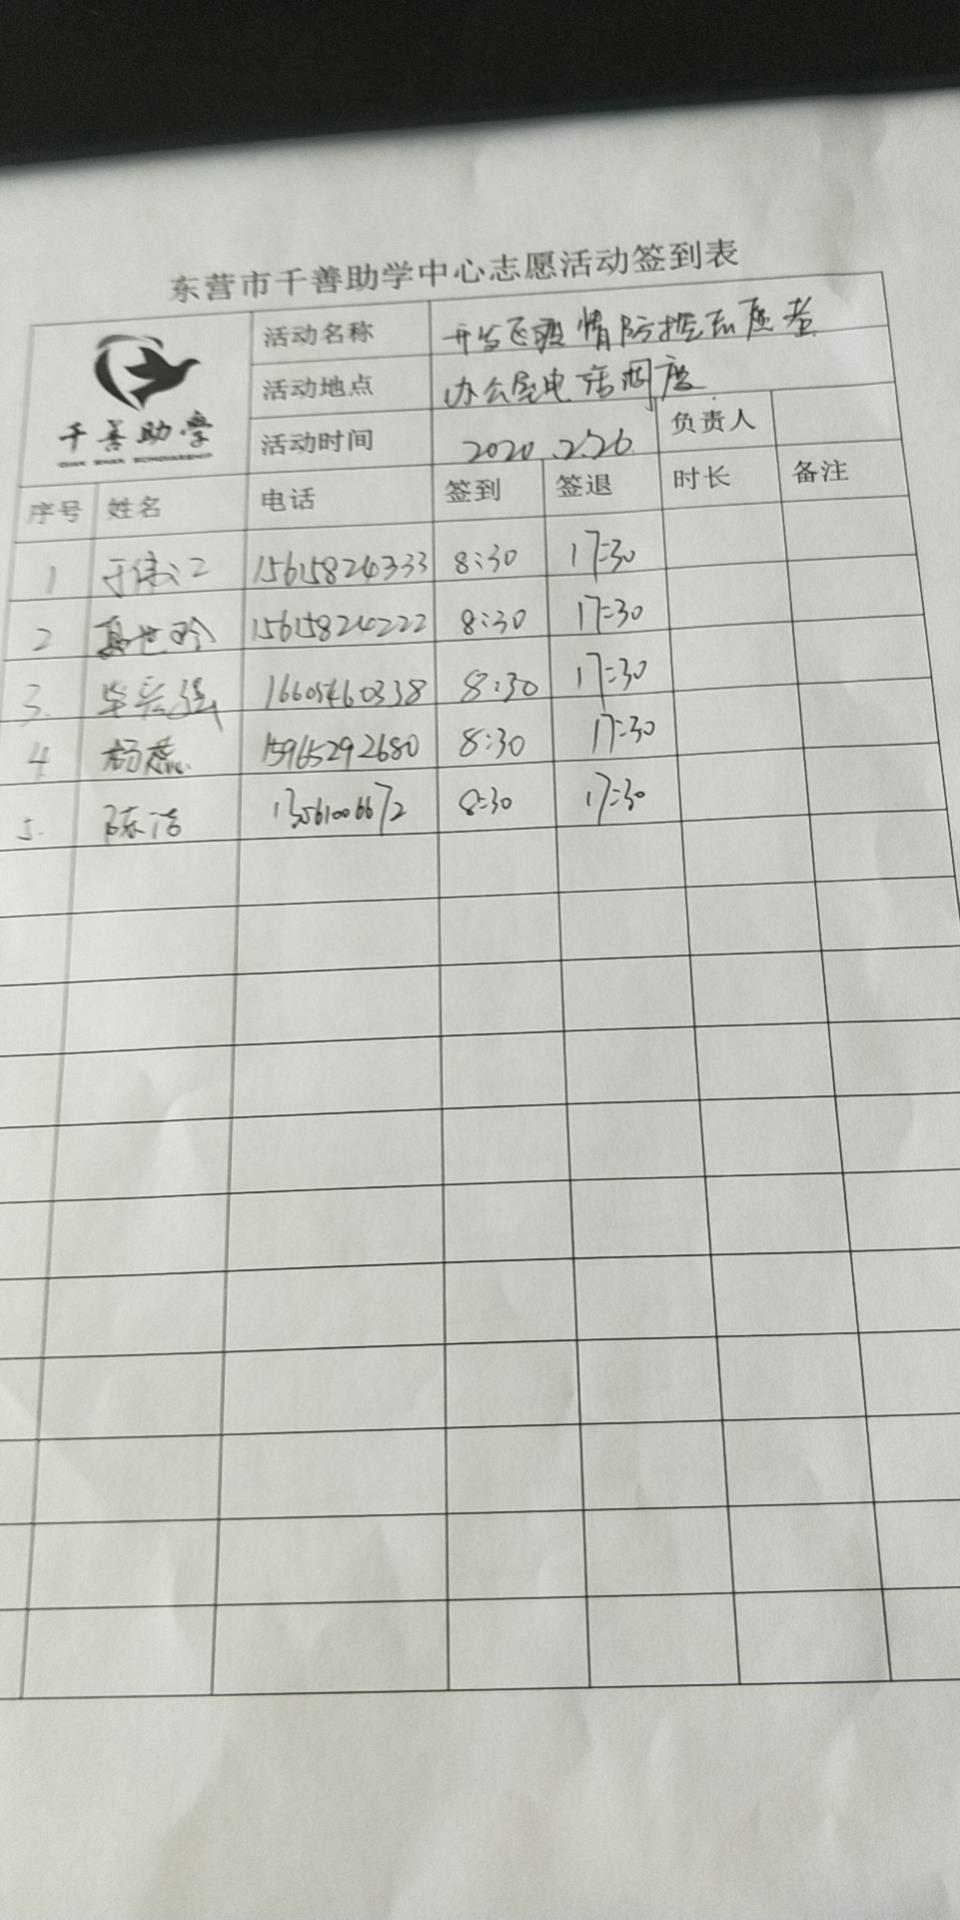 东营市千善助学中心志愿活动签到表
千善助学
QIAN SHAN SCHOLARSHIP
活动名称 开发区疫情防控志愿者
活动地点 办公室电话调度
活动时间 2020.2.26 负责人
序号 姓名 电话 签到 签退 时长 备注
1 于 15615824333 8:30 17:30
2 世 15615824222 8:30 17:30
3. 毕 16605460338 8:30 17:30
4 杨 15965292680 8:30 17:30
5. 陈洁 13561006672 8:30 17:30